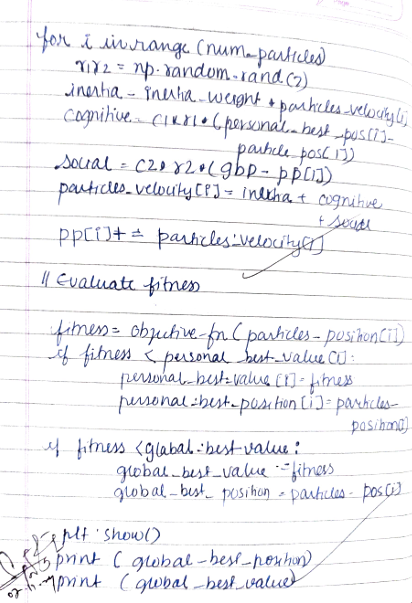 for i in range (num_particles)
r1r2 = np.random.rand(2)
inertia = inertia_weight * particles_velocity[i]
cognitive = c1*r1*(personal_best_pos[i]-
particle_pos[i])
social = c2*r2*(gbp - pp[i])
particles_velocity[i] = inertia + cognitive
+ social
pp[i] += particles.velocity[i]
// Evaluate fitness
fitness = objective-fn (particles-position[i])
if fitness < personal_best-value[i]:
personal_best-value[i] = fitness
personal-best-position[i] = particles-
position[i]
if fitness < global-best-value:
global_best_value = fitness
global_best_position = particles-pos[i]
plt.show()
print (global-best-position)
print (global_best_value)